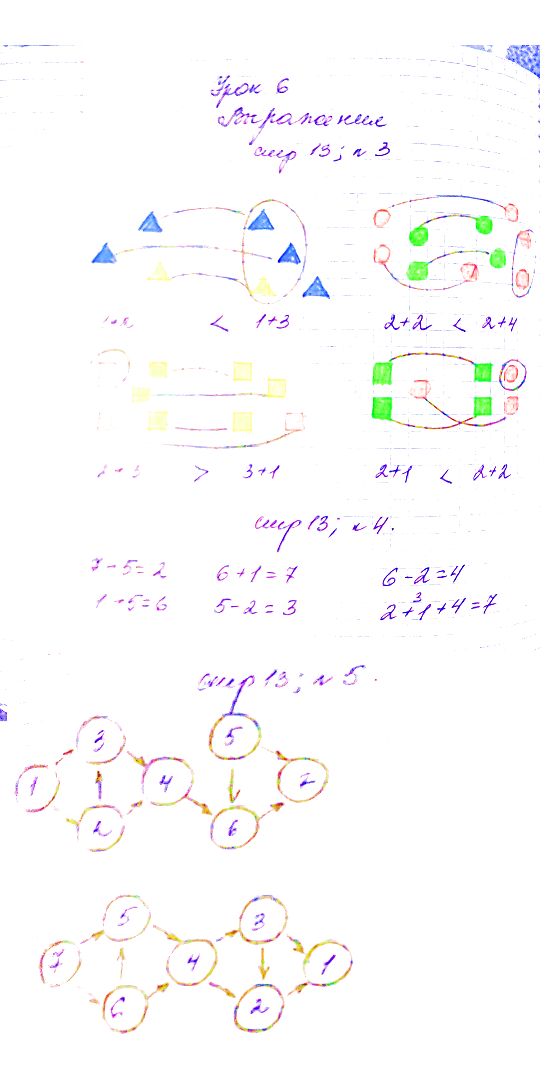 Урок 6
Выражения
стр 13; № 3
< 1+3
2+2 < 2+4
2+3 > 3+1
2+1 < 2+2
стр 13; № 4.
7-5=2 6+1=7 6-2=4
1+5=6 5-2=3 2+1+4=7
3
стр 13; № 5.
3 5
1 4 2
2 6
5 3
7 4 1
6 2